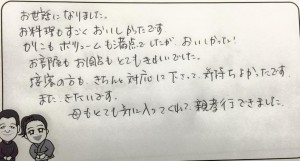 お世話になりました。
お料理もすごくおいしかったです。
ボリュームも満点でしたが、おいしかった!
お部屋もお風呂もとてもきれいでした。
接客の方も、きちんと対応して下さって、気持ちよかったです。
また、きたいです。
母もとても気に入ってくれて、親孝行できました。